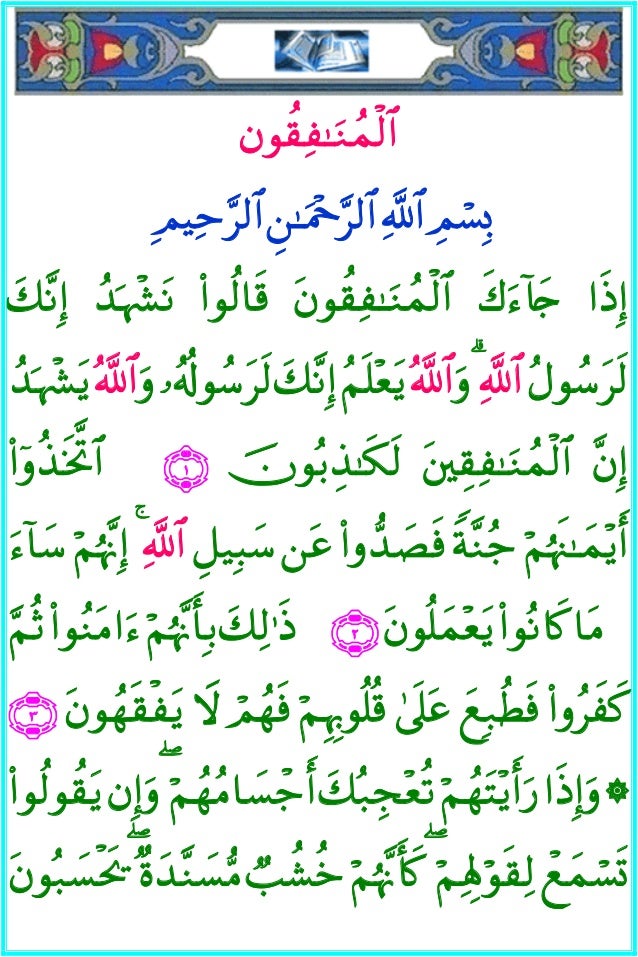 ٱلْمُنَـٰفِقُون
بِسْمِ ٱللَّهِ ٱلرَّحْمَـٰنِ ٱلرَّحِيمِ
إِذَا جَآءَكَ ٱلْمُنَـٰفِقُونَ قَالُوا۟ نَشْهَدُ إِنَّكَ
لَرَسُولُ ٱللَّهِ ۗ وَٱللَّهُ يَعْلَمُ إِنَّكَ لَرَسُولُهُۥ وَٱللَّهُ يَشْهَدُ
إِنَّ ٱلْمُنَـٰفِقِينَ لَكَـٰذِبُونَ ١ ٱتَّخَذُوٓا۟
أَيْمَـٰنَهُمْ جُنَّةً فَصَدُّوا۟ عَن سَبِيلِ ٱللَّهِ ۚ إِنَّهُمْ سَآءَ
مَا كَانُوا۟ يَعْمَلُونَ ٢ ذَٰلِكَ بِأَنَّهُمْ ءَامَنُوا۟ ثُمَّ
كَفَرُوا۟ فَطُبِعَ عَلَىٰ قُلُوبِهِمْ فَهُمْ لَا يَفْقَهُونَ ٣
۞ وَإِذَا رَأَيْتَهُمْ تُعْجِبُكَ أَجْسَامُهُمْ ۖ وَإِن يَقُولُوا۟
تَسْمَعْ لِقَوْلِهِمْ ۖ كَأَنَّهُمْ خُشُبٌ مُّسَنَّدَةٌ ۖ يَحْسَبُونَ